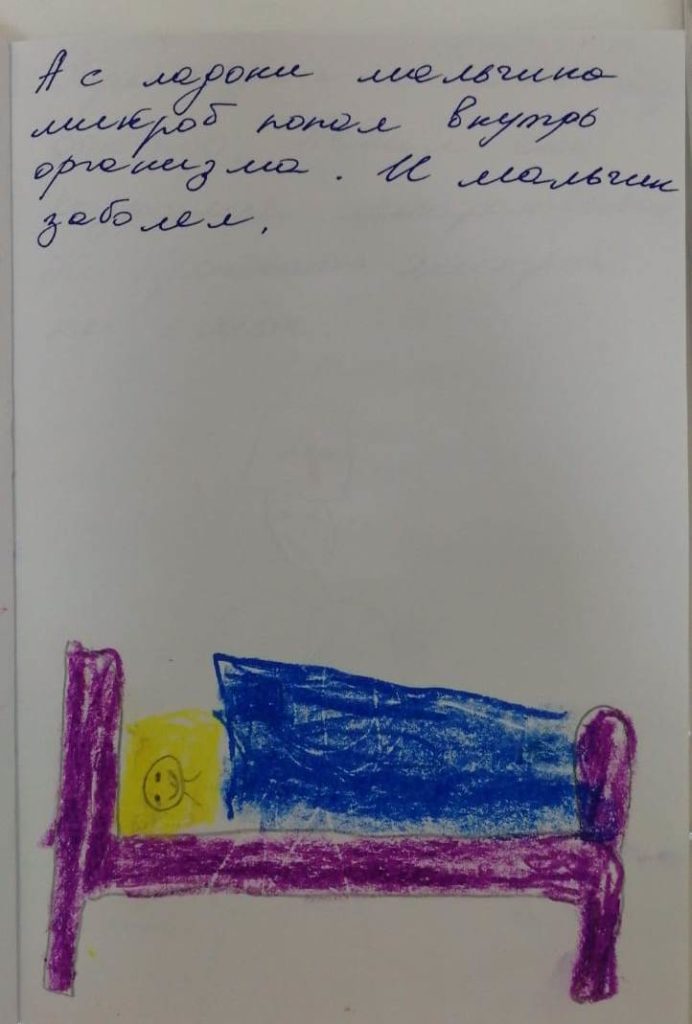 А с ладони мальчика
микроб попал внутрь
организма. И мальчик
заболел.